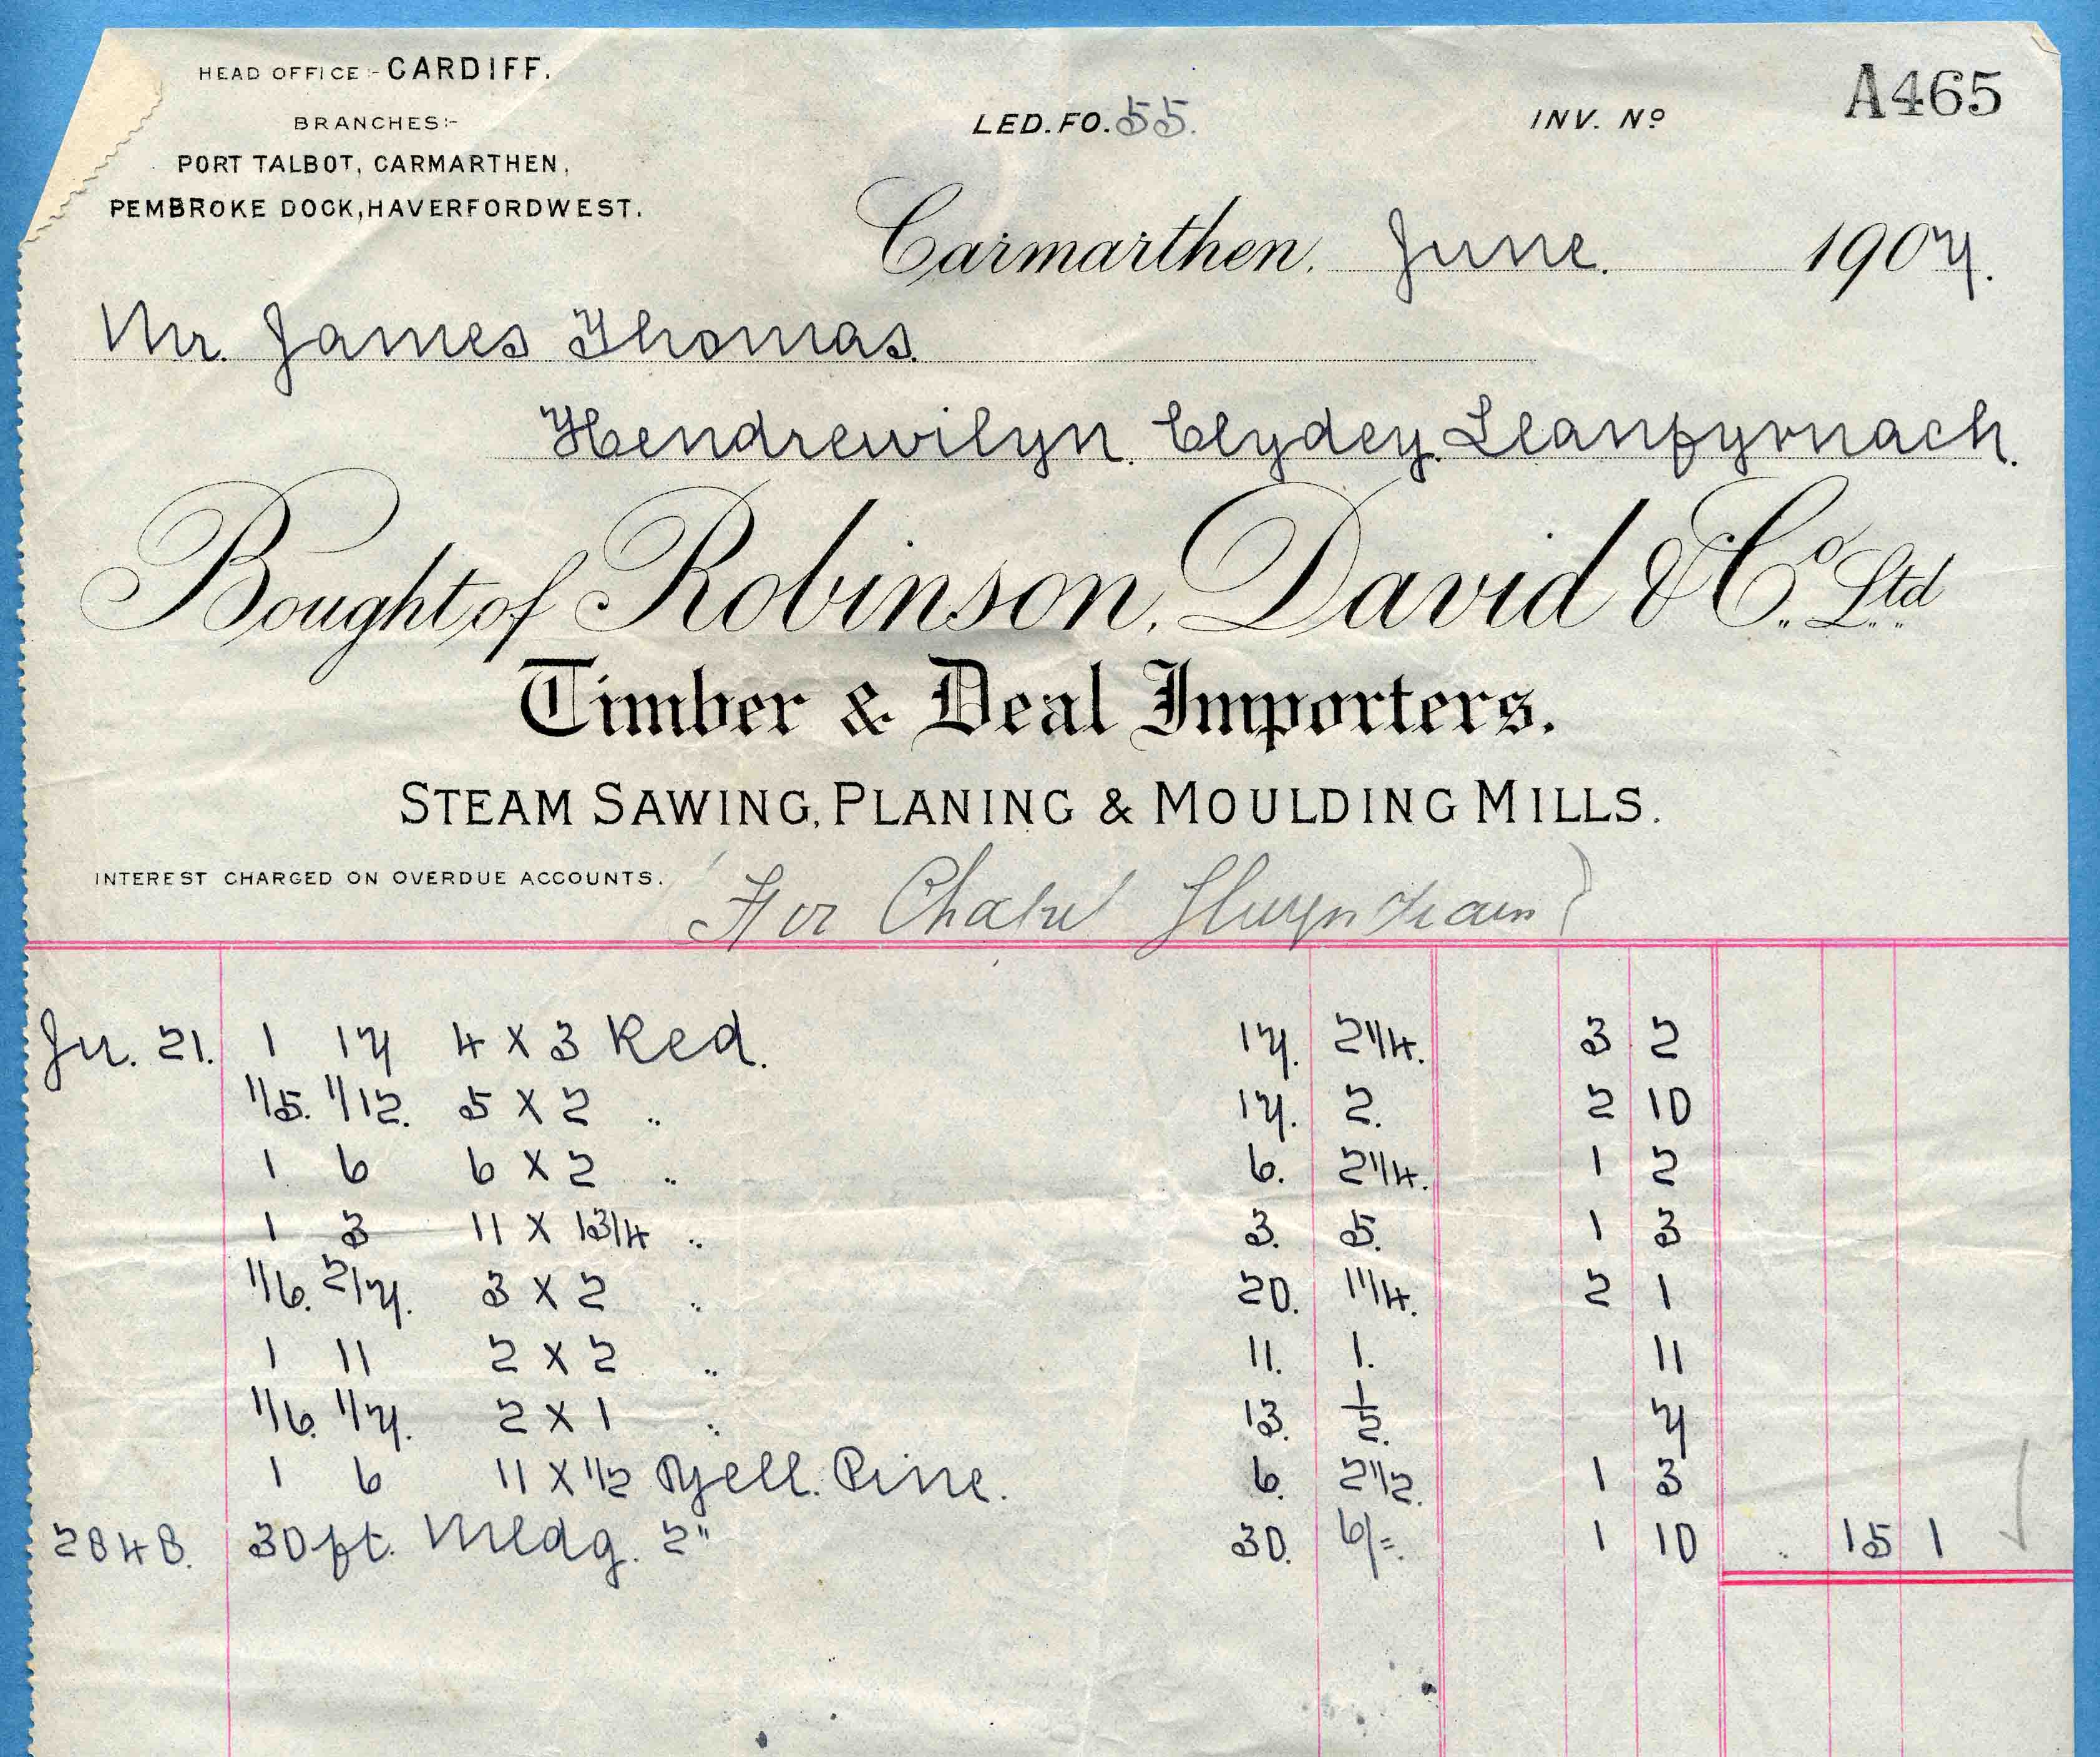 HEAD OFFICE:- CARDIFF.
BRANCHES:-
PORT TALBOT, CARMARTHEN,
PEMBROKE DOCK, HAVERFORDWEST.
LED. FO. 55.
INV. Nº A465
Carmarthen, June. 1907.
Mr. James Thomas.
Hendrewilyn. Clydey. Llanfyrnach.
Bought of Robinson, David & Co. Ltd
Timber & Deal Importers.
STEAM SAWING, PLANING & MOULDING MILLS.
INTEREST CHARGED ON OVERDUE ACCOUNTS.
(For Chapel
Ju. 21. 1 17 4 x 3 Red. 17. 2 1/4. 3 2
1/5. 1/12. 5 x 2 " 17. 2. 2 10
1 6 6 x 2 " 6. 2 1/4. 1 2
1 3 11 x 1 3/4 " 3. 5. 1 3
1/6. 2/7. 3 x 2 " 20. 1 1/4. 2 1
1 11 2 x 2 " 11. 1. 11
1/6. 1/7. 2 x 1 " 13. 1/2. 7
1 6 11 x 1/2 Yell. Pine. 6. 2 1/2. 1 3
2848. 30 ft. Mldg. 2" 30. 6/=. 1 10 15 1